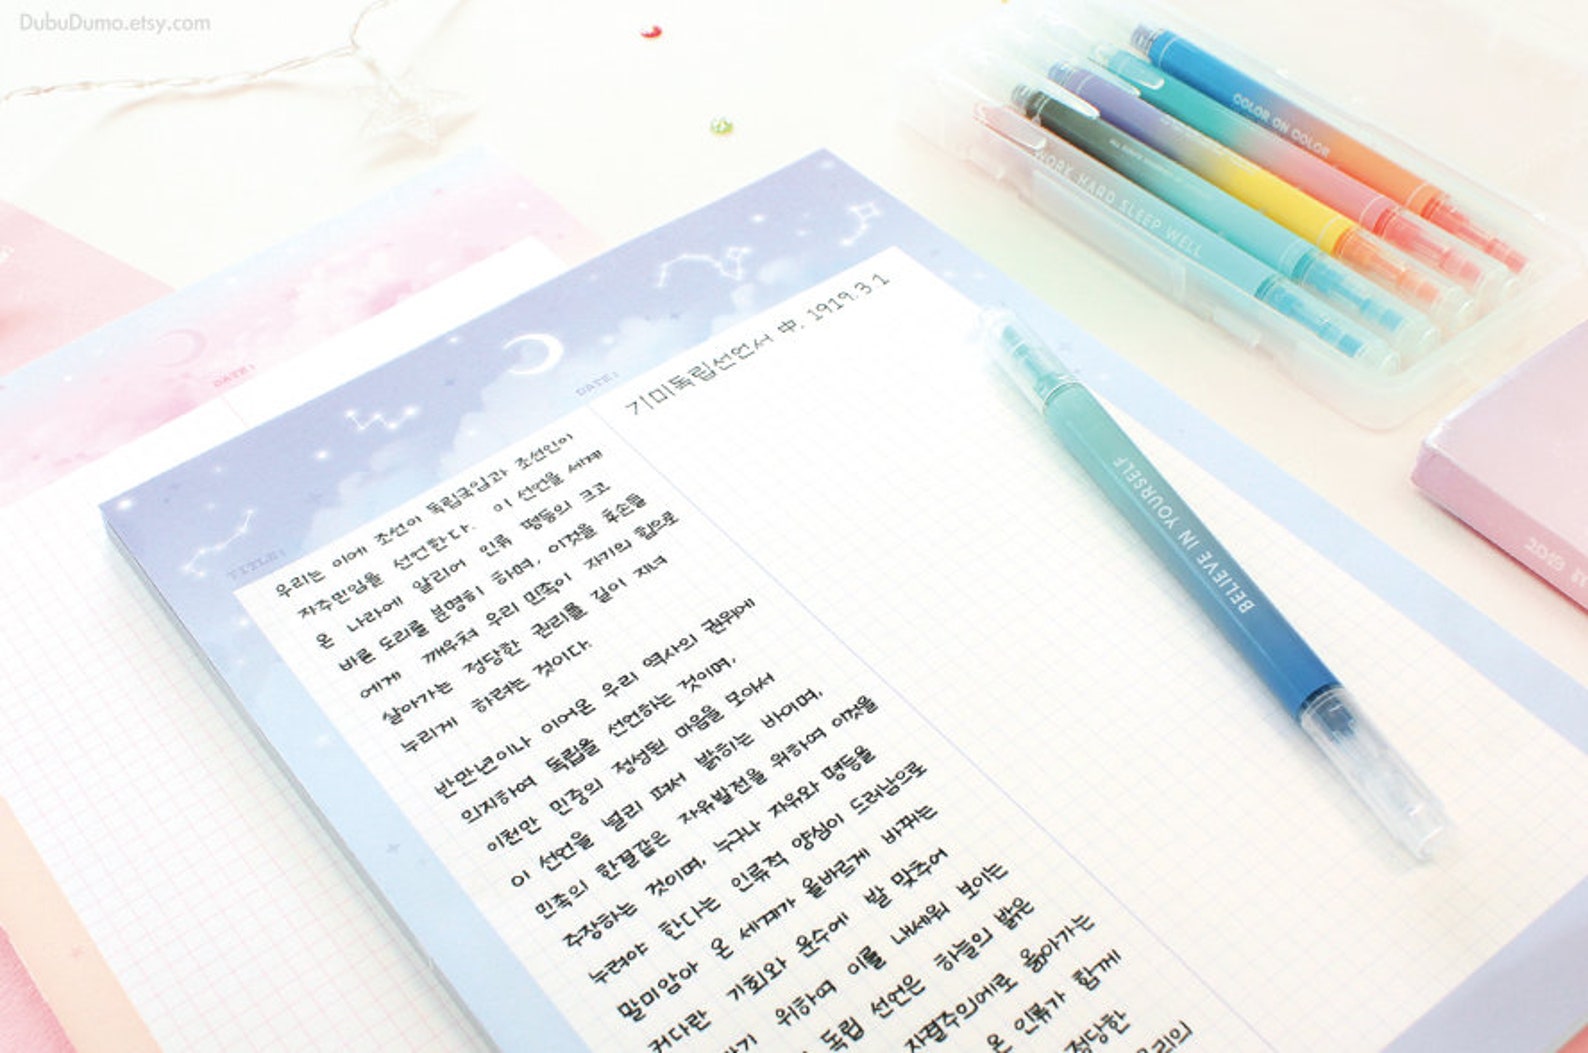 DubuDumo.etsy.com
COLOR ON COLOR
WORK HARD SLEEP WELL
BELIEVE IN YOURSELF
DATE:
DATE:
TITLE:
기미독립선언서 中. 1919.3.1
우리는 이에 조선이 독립국임과 조선인이
자주민임을 선언한다. 이 선언을 세계
온 나라에 알리어 인류 평등의 크고
바른 도리를 분명히 하며, 이것을 후손들
에게 깨우쳐 우리 민족이 자기의 힘으로
살아가는 정당한 권리를 길이 지녀
누리게 하려는 것이다.
반만년이나 이어온 우리 역사의 권위에
의지하여 독립을 선언하는 것이며,
이천만 민중의 정성된 마음을 모아서
이 선언을 널리 펴서 밝히는 바이며,
민족의 한결같은 자유발전을 위하여 이것을
주장하는 것이며, 누구나 자유와 평등을
누려야 한다는 인류적 양심이 드러남으로
말미암아 온 세계가 올바르게 바뀌는
커다란 기회와 운수에 발 맞추어
위하여 이를 내세워 보이는
독립 선언은 하늘의 밝은
자결주의에로 옮아가는
온 인류가 함께
정당한